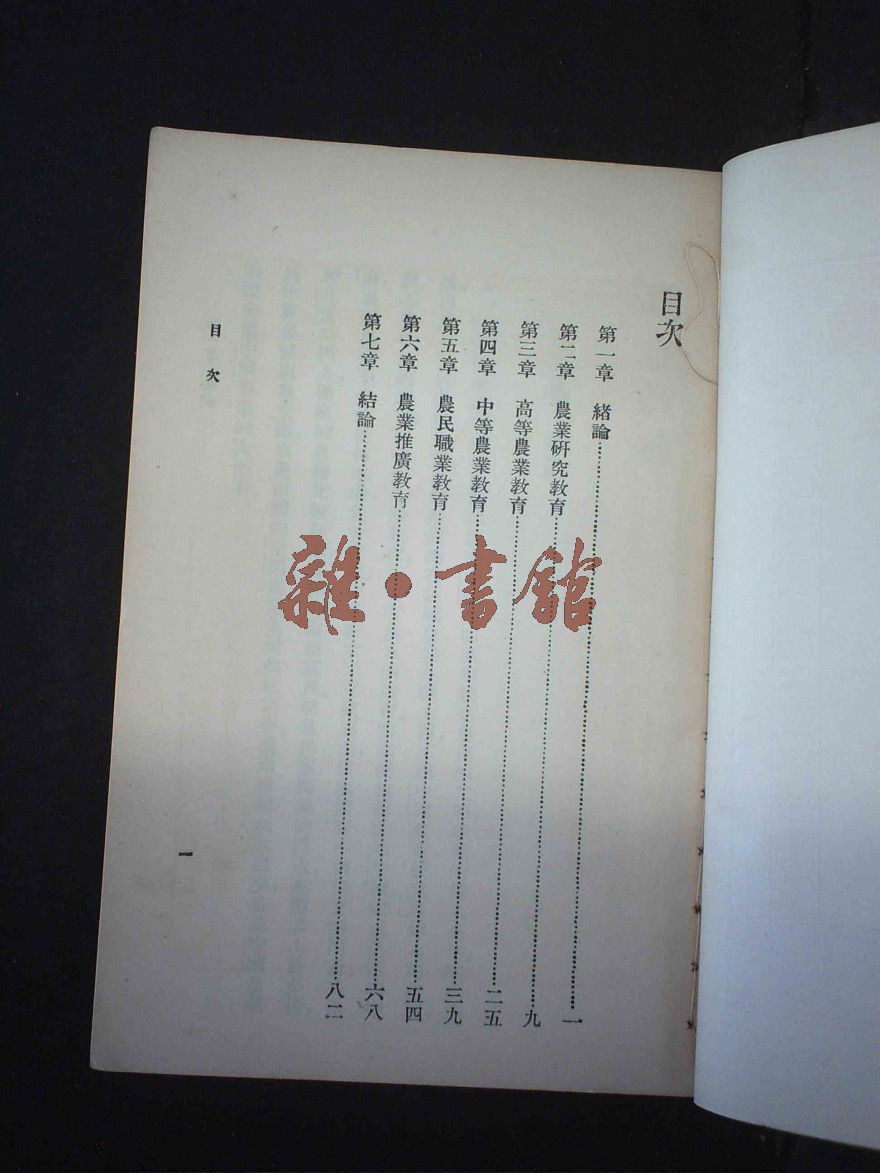 目次
第一章 緒論……一
第二章 農業研究教育……九
第三章 高等農業教育……二五
第四章 中等農業教育……三九
第五章 農民職業教育……五四
第六章 農業推廣教育……六八
第七章 結論……八二
目次
一
雜·書館